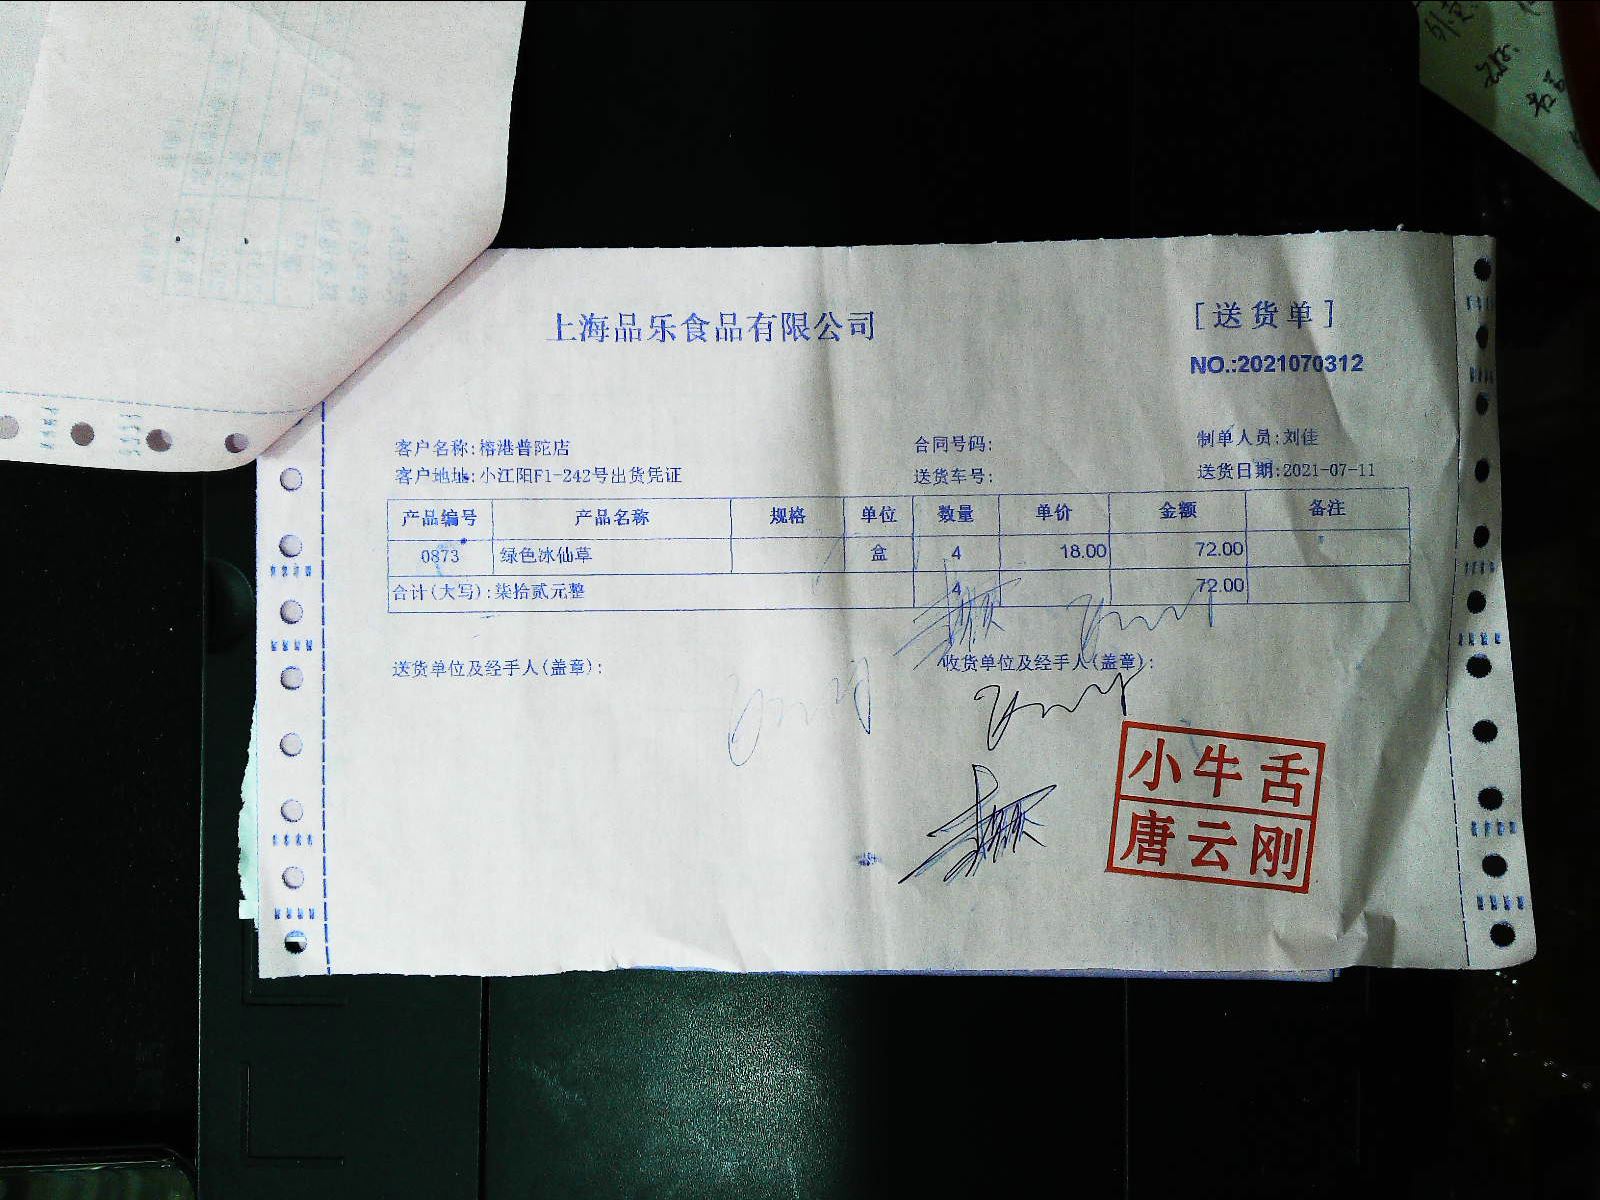 上海品乐食品有限公司
[送货单]
NO.:2021070312
客户名称:榕港普陀店 合同号码: 制单人员:刘佳
客户地址:小江阳F1-242号出货凭证 送货车号: 送货日期:2021-07-11
产品编号 产品名称 规格 单位 数量 单价 金额 备注
0873 绿色冰仙草 盒 4 18.00 72.00
合计(大写):柒拾贰元整 4 72.00
送货单位及经手人(盖章): 收货单位及经手人(盖章):
小牛舌
唐云刚